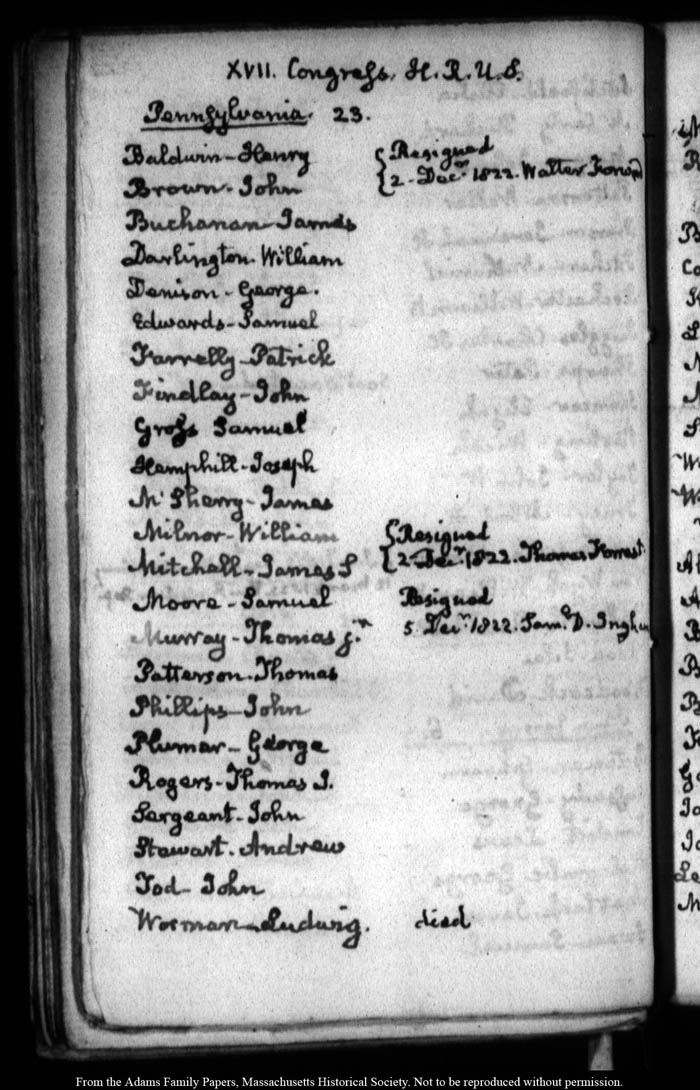 XVII. Congress. H. R. U. S.
Pennsylvania. 23.
Baldwin - Henry { Resigned
Brown - John { 2. Decr. 1822. Walter Forwd
Buchanan - James
Darlington - William
Denison - George.
Edwards - Samuel
Farrelly - Patrick
Findlay - John
Gross Samuel
Hemphill - Joseph
Mc Sherry - James
Milnor - William { Resigned
Mitchell - James S { 2 Decr. 1822. Thomas Forrest
Moore - Samuel Resigned
Murray - Thomas jr. 5. Decr. 1822. Saml. D. Ingham
Patterson. Thomas
Phillips - John
Plumer - George
Rogers - Thomas J.
Sergeant - John
Stewart. Andrew
Tod - John
Worman - Ludwig. died
From the Adams Family Papers, Massachusetts Historical Society. Not to be reproduced without permission.